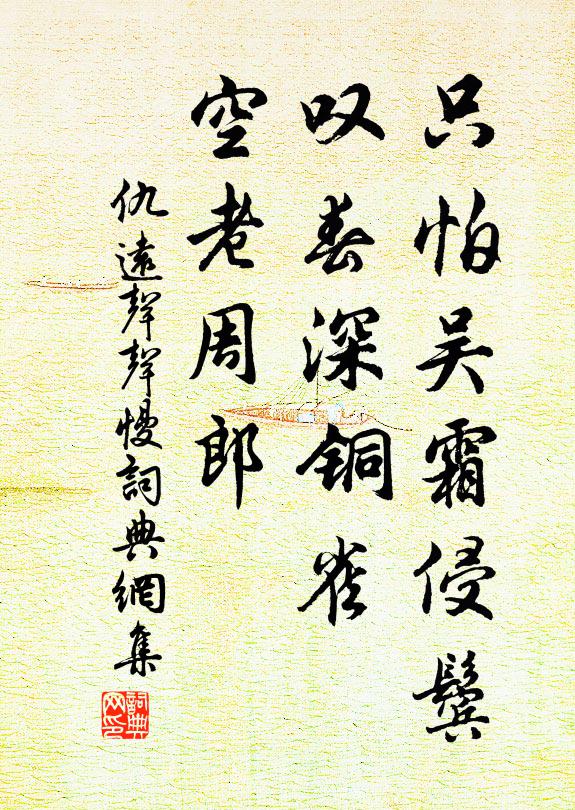 只怕吴霜侵鬓
叹春深铜雀
空老周郎
仇遠聲聲慢詞典網集
詞典网印